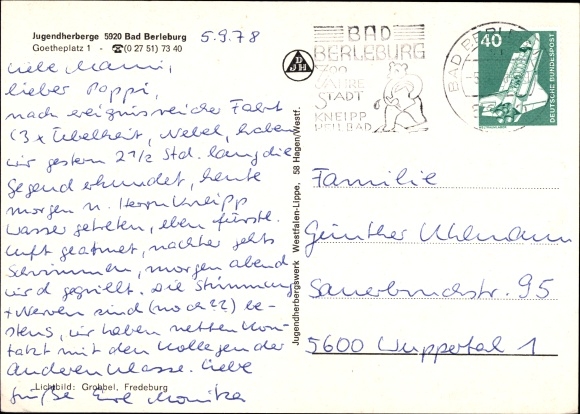 Jugendherberge 5920 Bad Berleburg
Goetheplatz 1 - ☎(0 27 51) 73 40
5.9.78
Liebe Mammi,
lieber Pappi,
nach ereignisreicher Fahrt
(3x Übelkeit, Nebel, haben
wir gestern 2 1/2 Std. lang die
Gegend erkundet, heute
morgen n. Herrn Kneipp
Wasser getreten, eben fürstl.
Luft geatmet, nachher gehts
Schwimmen, morgen abend
wird gegrillt. Die Stimmung
+ Nerven sind (noch ??) be-
stens, wir haben netten Kon-
takt mit den Kollegen der
anderen Klasse. Liebe
Grüße Eure Monika
Lichtbild: Grobbel, Fredeburg
DJH
Jugendherbergswerk Westfalen-Lippe, 58 Hagen/Westf.
BAD
BERLEBURG
700
JAHRE
STADT
KNEIPP
HEILBAD
BAD BERLE
40
DEUTSCHE BUNDESPOST
Familie
Günther Uhlmann
Sauerbruchstr. 95
5600 Wuppertal 1